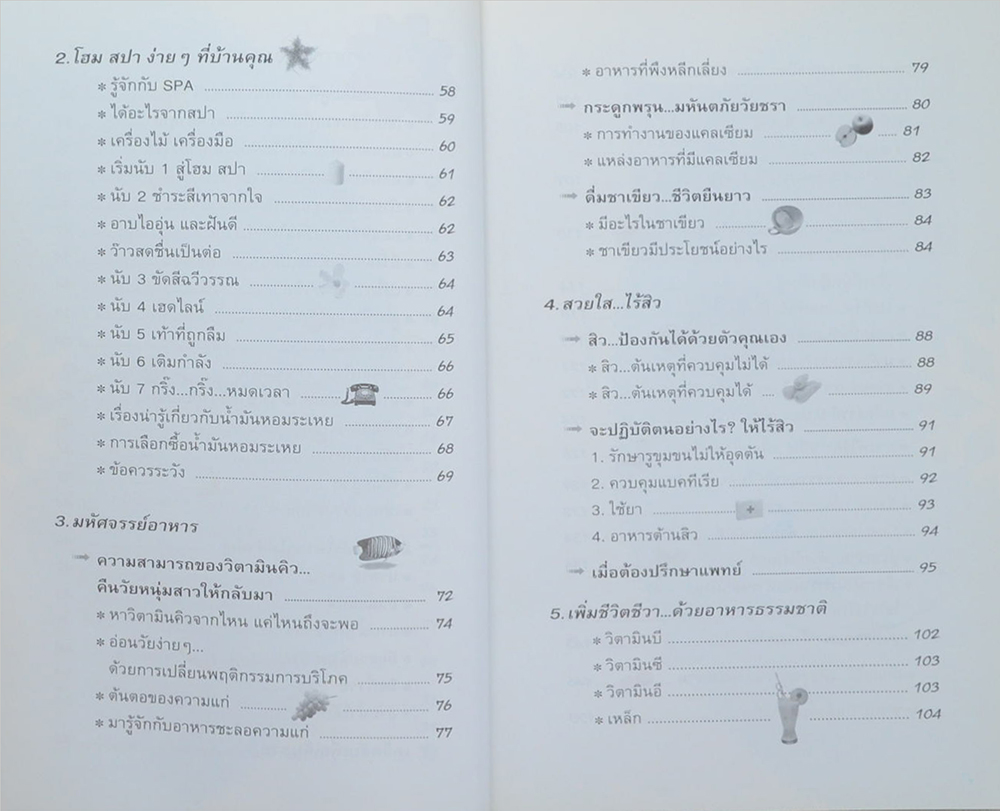 2. โฮม สปา ง่าย ๆ ที่บ้านคุณ
* รู้จักกับ SPA ........ 58
* ได้อะไรจากสปา ........ 59
* เครื่องไม้ เครื่องมือ ........ 60
* เริ่มนับ 1 สู่โฮม สปา ........ 61
* นับ 2 ชำระสีเทาจากใจ ........ 62
* อาบไออุ่น และฝันดี ........ 62
* ว๊าวสดชื่นเป็นต่อ ........ 63
* นับ 3 ขัดสีฉวีวรรณ ........ 64
* นับ 4 เฮดไลน์ ........ 64
* นับ 5 เท้าที่ถูกลืม ........ 65
* นับ 6 เติมกำลัง ........ 66
* นับ 7 กริ๊ง...กริ๊ง...หมดเวลา ........ 66
* เรื่องน่ารู้เกี่ยวกับน้ำมันหอมระเหย ........ 67
* การเลือกซื้อน้ำมันหอมระเหย ........ 68
* ข้อควรระวัง ........ 69
3. มหัศจรรย์อาหาร
→ ความสามารถของวิตามินคิว...
คืนวัยหนุ่มสาวให้กลับมา ........ 72
* หาวิตามินคิวจากไหน แค่ไหนถึงจะพอ ........ 74
* อ่อนวัยง่ายๆ...
ด้วยการเปลี่ยนพฤติกรรมการบริโภค ........ 75
* ต้นตอของความแก่ ........ 76
* มารู้จักกับอาหารชะลอความแก่ ........ 77
* อาหารที่พึงหลีกเลี่ยง ........ 79
→ กระดูกพรุน...มหันตภัยวัยชรา ........ 80
* การทำงานของแคลเซียม ........ 81
* แหล่งอาหารที่มีแคลเซียม ........ 82
→ ดื่มชาเขียว...ชีวิตยืนยาว ........ 83
* มีอะไรในชาเขียว ........ 84
* ชาเขียวมีประโยชน์อย่างไร ........ 84
4. สวยใส...ไร้สิว
→ สิว...ป้องกันได้ด้วยตัวคุณเอง ........ 88
* สิว...ต้นเหตุที่ควบคุมไม่ได้ ........ 88
* สิว...ต้นเหตุที่ควบคุมได้ ........ 89
→ จะปฏิบัติตนอย่างไร? ให้ไร้สิว ........ 91
1. รักษารูขุมขนไม่ให้อุดตัน ........ 91
2. ควบคุมแบคทีเรีย ........ 92
3. ใช้ยา ........ 93
4. อาหารต้านสิว ........ 94
→ เมื่อต้องปรึกษาแพทย์ ........ 95
5. เพิ่มชีวิตชีวา...ด้วยอาหารธรรมชาติ
* วิตามินบี ........ 102
* วิตามินซี ........ 103
* วิตามินอี ........ 103
* เหล็ก ........ 104